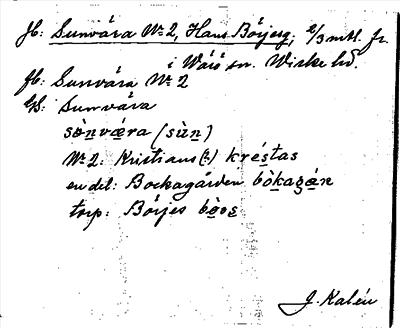 Jb: Sunvära Nr 2, Hans Börjesg, 2/3 mtl. fr.
i Wäró sn. Wiske hd.
Jb: Sunvára Nr 2
Us: Sunvára
sònværa (sùn)
Nr 2: Kristians (:) kréstas
en del: Bockagården bòkagán
torp: Börjes bòes
J. Kalén